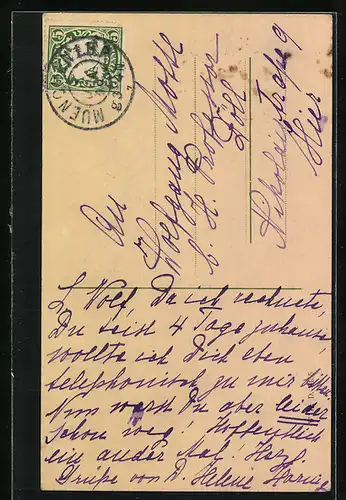 MUENCHEN
An
Wolfgang Molle
b. H. Professor
Nikolaistraße 9
Hier
L. Wolf, Da ich rechnete,
Du seist 4 Tage zuhause,
wollte ich Dich eben
telephonisch zu mir bitten.
Nun warst Du aber leider
schon weg! Hoffentlich
ein ander Mal. Herzl.
Grüße von D. Helene